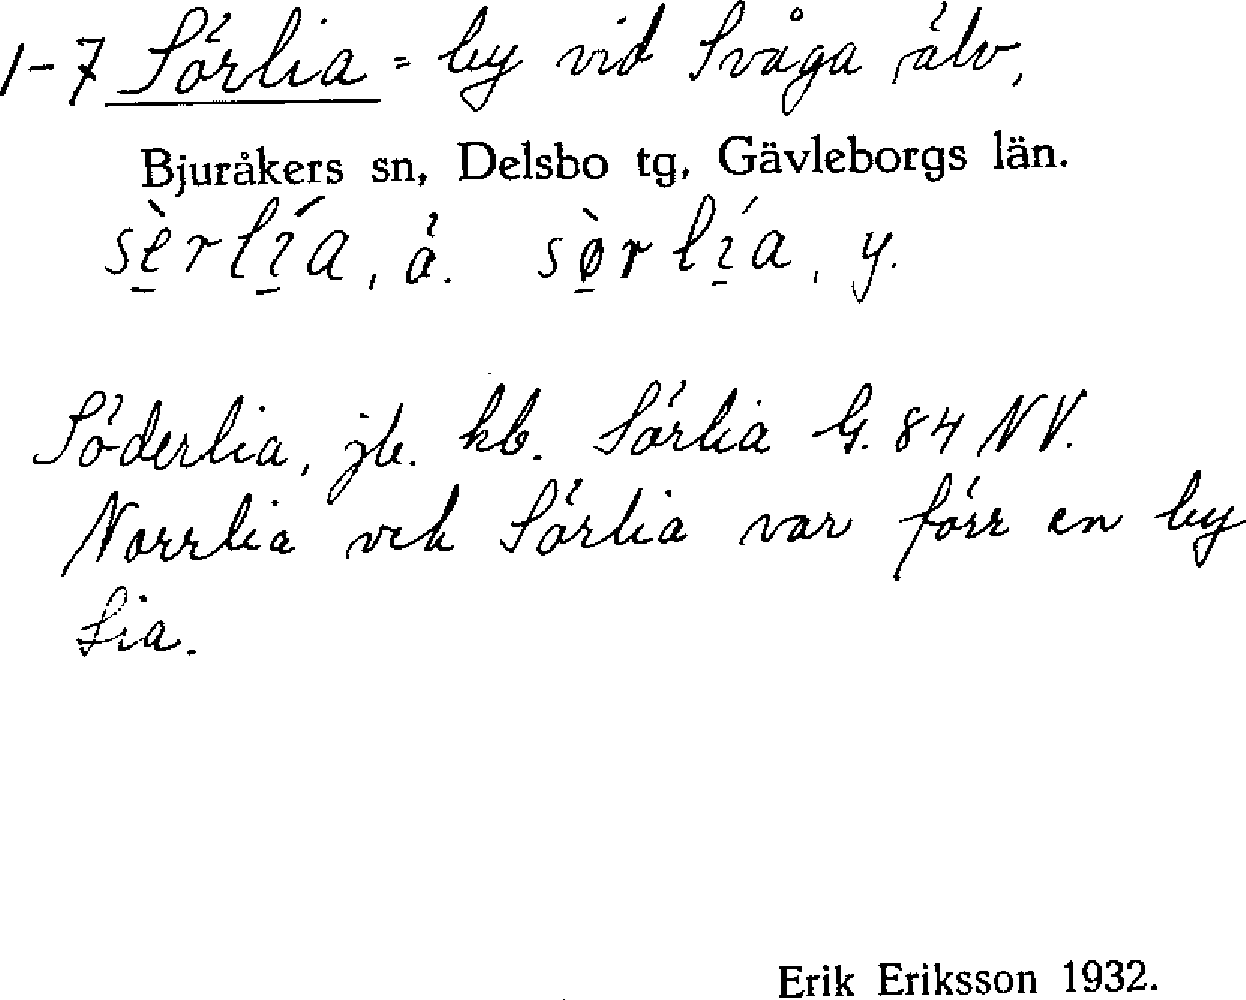 1-7 Sörlia = by vid Svåga älv,
Bjuråkers sn, Delsbo tg, Gävleborgs län.
sèrlía, ä. sørlía, y.
Söderlia, jb. kb. Sörlia G. 84 NV.
Norrlia och Sörlia var förr en by
Lia.
Erik Eriksson 1932.